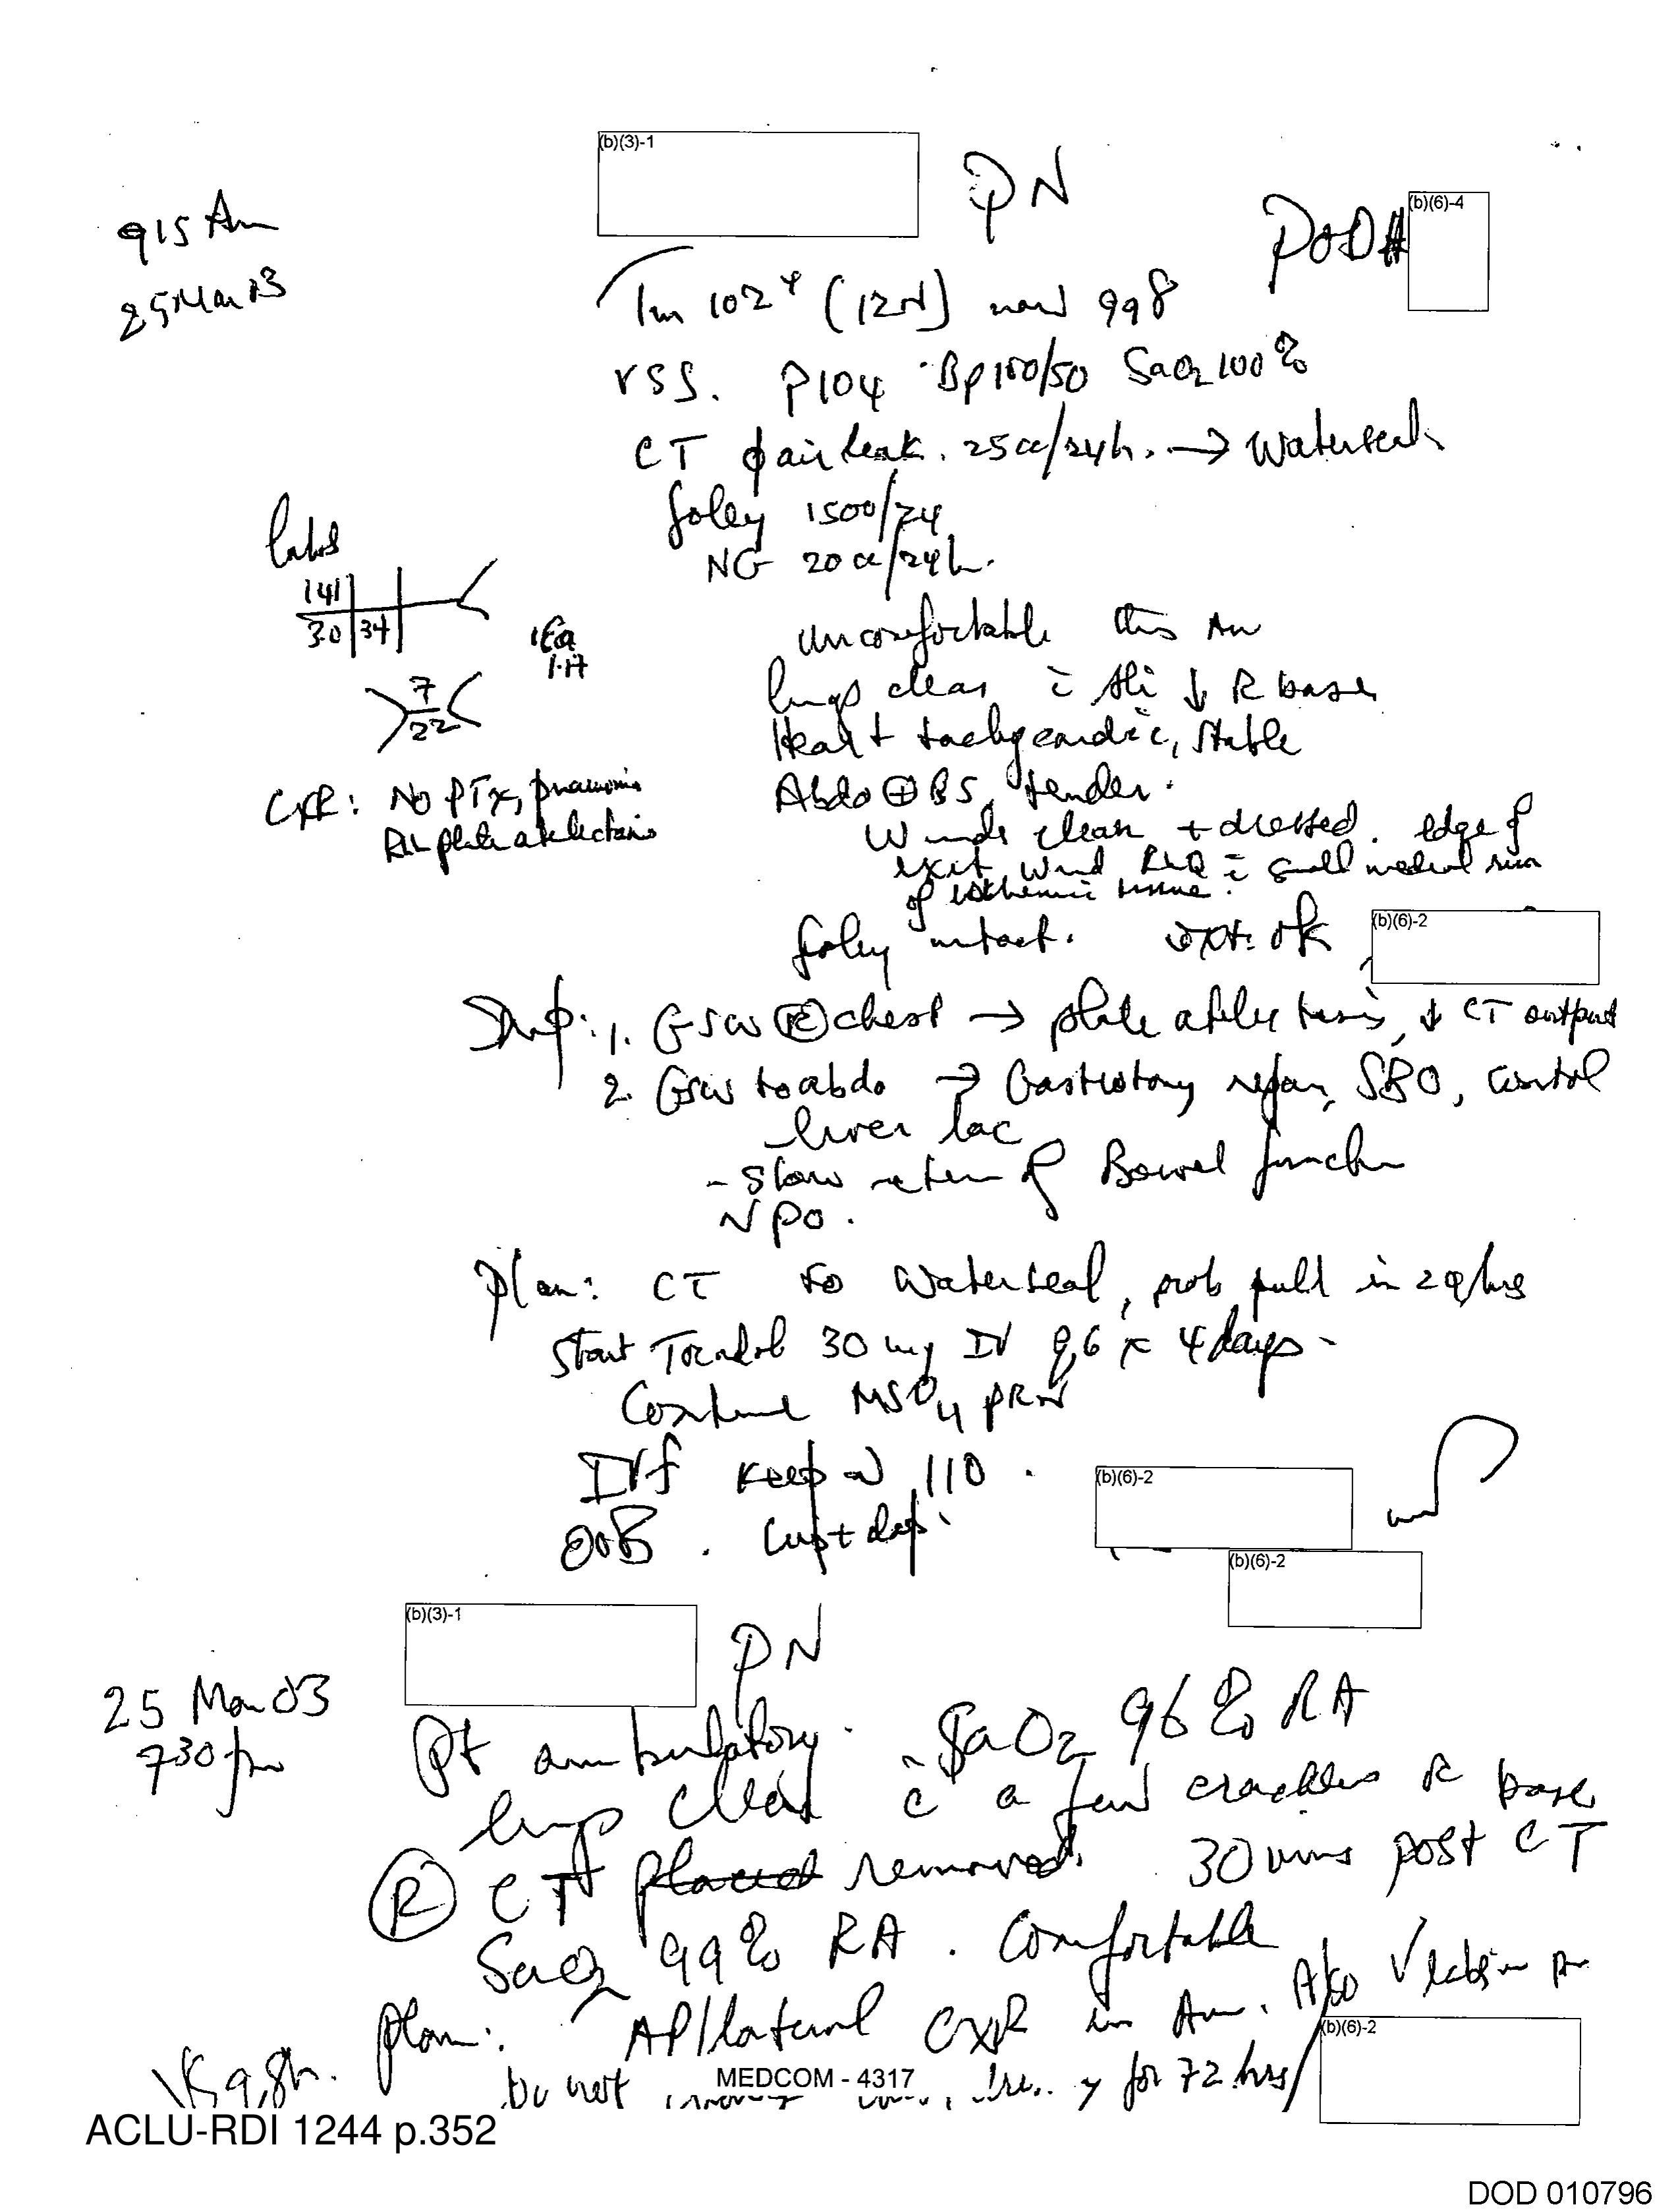 (b)(3)-1
PN
915 Am
25 Mar 03
POD#
(b)(6)-4
Tm 102⁴ (12N) now 998
VSS. P104 Bp100/50 SaO2 100%
CT ϕ air leak. 25cc/24h. → Waterseal
foley 1500/24
NG 20cc/24h.
labs
141
3.0 34
iCa
1.17
7
22
CXR: No PTx, pneumonia
RLL plate atelectasis
uncomfortable this Am
lungs clear c̄ sli ↓ R base
Heart tachycardic, stable
Abdo ⊕ BS, tender.
Wounds clean + dressed. edge of
exit wound RLQ c̄ small medial rim
of ischemic tissue.
foley intact. ext. ok
(b)(6)-2
Imp: 1. GSW Ⓡ chest → plate atelectasis, ↓ CT output
2. GSW to abdo → Gastrotomy repair, SBO, control
liver lac
- Slow return of Bowel function
NPO.
Plan: CT to Waterseal, prob pull in 24hrs
Start Toradol 30 mg IV q6 x 4 days
Continue MSO4 PRN
IVf keep @ 110.
OOB.
(b)(6)-2
(b)(6)-2
(b)(3)-1
PN
25 Mar 03
730 pm
Pt ambulatory. SaO2 96% RA
lungs clear c̄ a few crackles R base
Ⓡ CT placed removed. 30 mins post CT
SaO2 99% RA. Comfortable
Plan: AP/lateral CXR in Am. Also
VS q8h.
Do not for 72 hrs/
(b)(6)-2
MEDCOM - 4317
ACLU-RDI 1244 p.352
DOD 010796